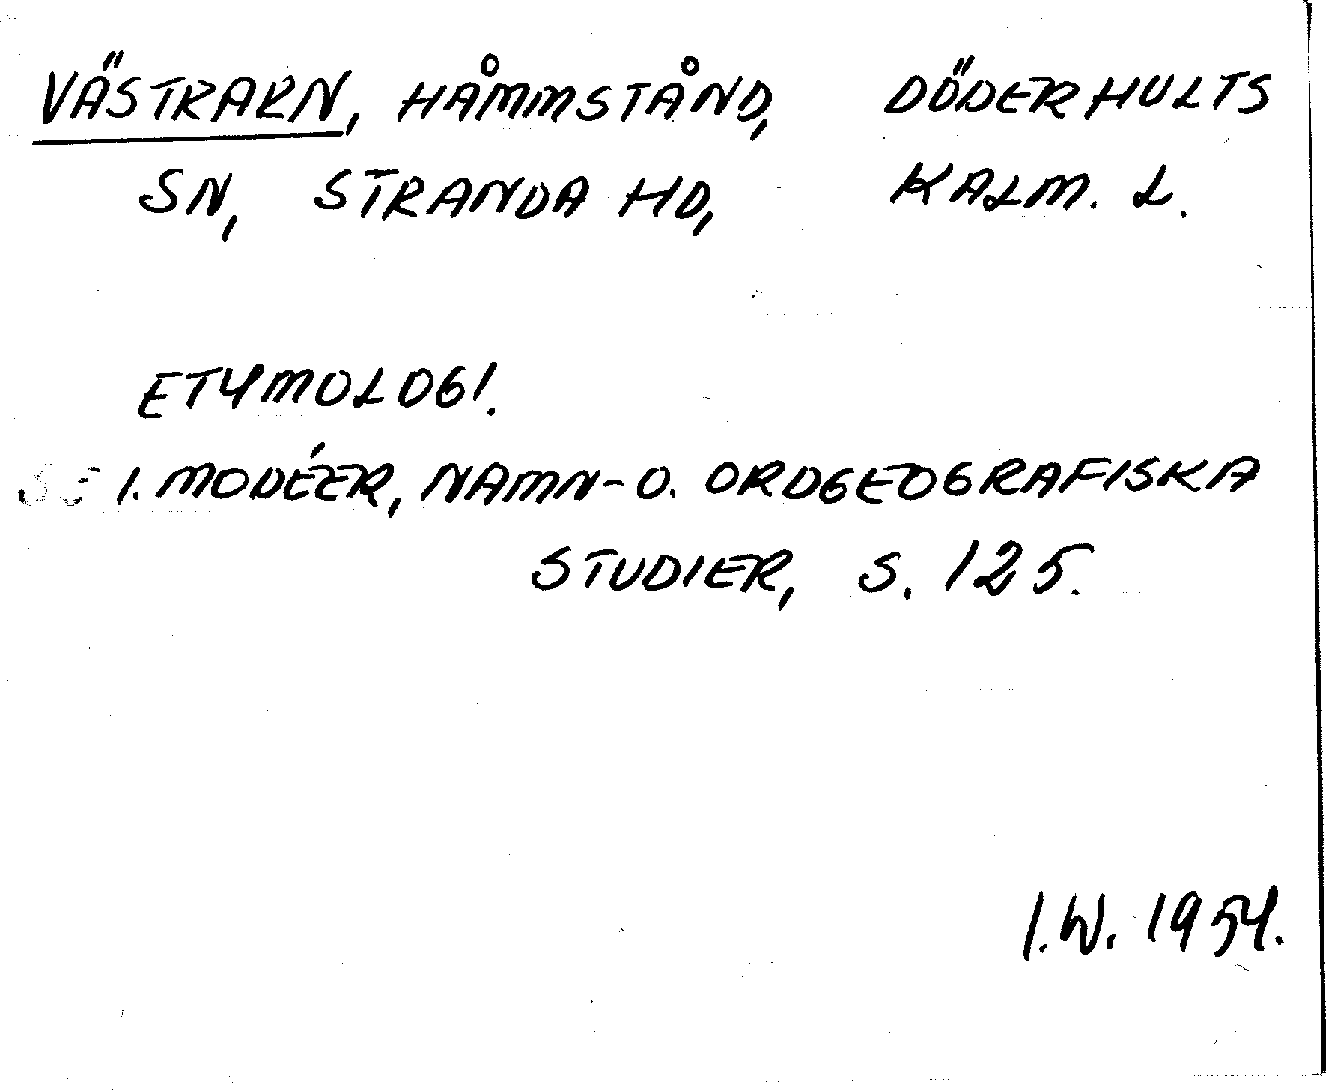 VÄSTRARN, HÅMMSTÅND, DÖDERHULTS
SN, STRANDA HD, KALM. L.
ETYMOLOGI.
SE I. MODÉER, NAMN- O. ORDGEOGRAFISKA
STUDIER, S. 125.
I.W. 1954.